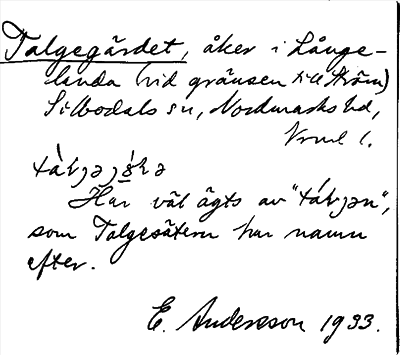 Talgegärdet, åker i Långe-
landa (vid gränsen till Ström)
Silbodals sn, Nordmarks hd,
Vrml l.
Har väl ägts av
som Talgesätern har namn
efter.
E. Andersson 1933.